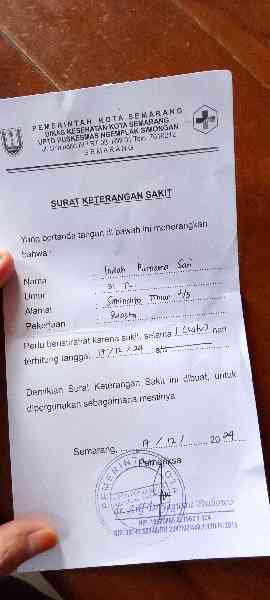 PEMERINTAH KOTA SEMARANG
DINAS KESEHATAN KOTA SEMARANG
UPTD PUSKESMAS NGEMPLAK SIMONGAN
SEMARANG
SURAT KETERANGAN SAKIT
Yang bertanda tangan di bawah ini menerangkan
bahwa :
Nama : Indah Purnama Sari
Umur : 31 th
Alamat :
Pekerjaan : Swasta
Perlu beristirahat karena sakit, selama 1 (satu) hari
terhitung tanggal, 17/12/24 s/d
Demikian Surat Keterangan Sakit ini dibuat, untuk
dipergunakan sebagaimana mestinya.
Semarang, 17/12/ 2024
Pemeriksa
PEMERINTAH KOTA